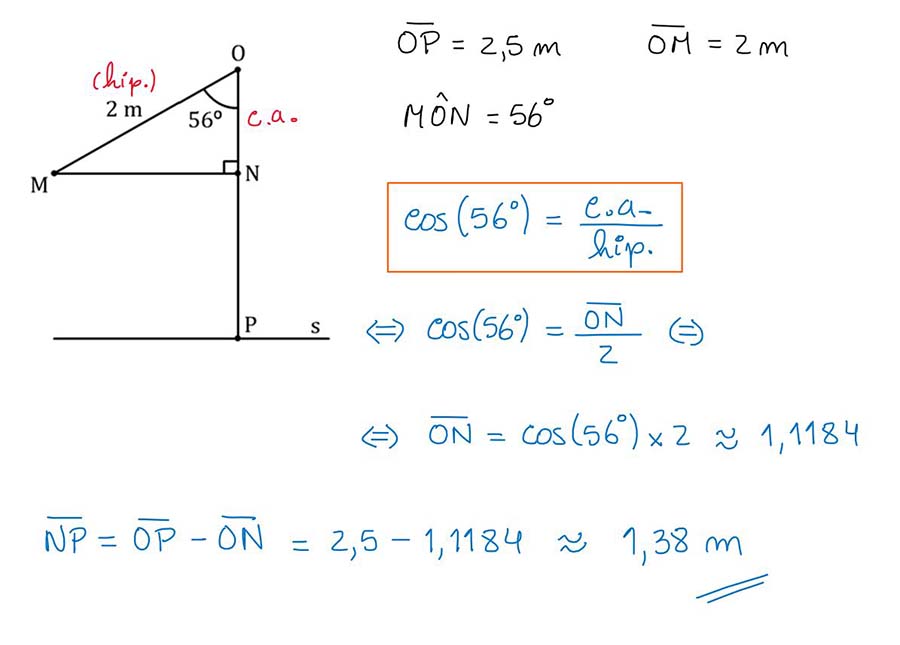 O
(hip.)
2 m
56º
c.a.
M
N
P
s
O͞P͞ = 2,5 m
O͞M͞ = 2 m
MÔN = 56°
cos(56°) = c.a. / hip.
⇔ cos(56°) = O͞N͞ / 2 ⇔
⇔ O͞N͞ = cos(56°) × 2 ≈ 1,1184
N͞P͞ = O͞P͞ - O͞N͞ = 2,5 - 1,1184 ≈ 1,38 m